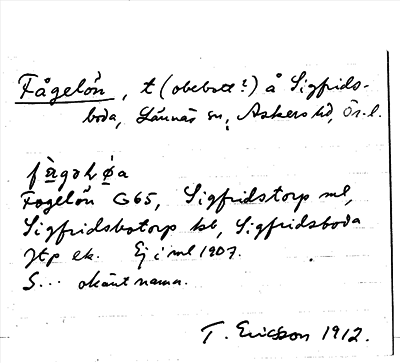 Fågelön, t (obebott?) å Sigfrids-
boda, Lännäs sn, Askers hd, Ör. l.
Fogelön G65, Sigfridstorp ml,
Sigfridsbotorp kb, Sigfridsboda
Jtp ek. Ej i ml 1907.
S... okänt namn.
T. Ericsson 1912.